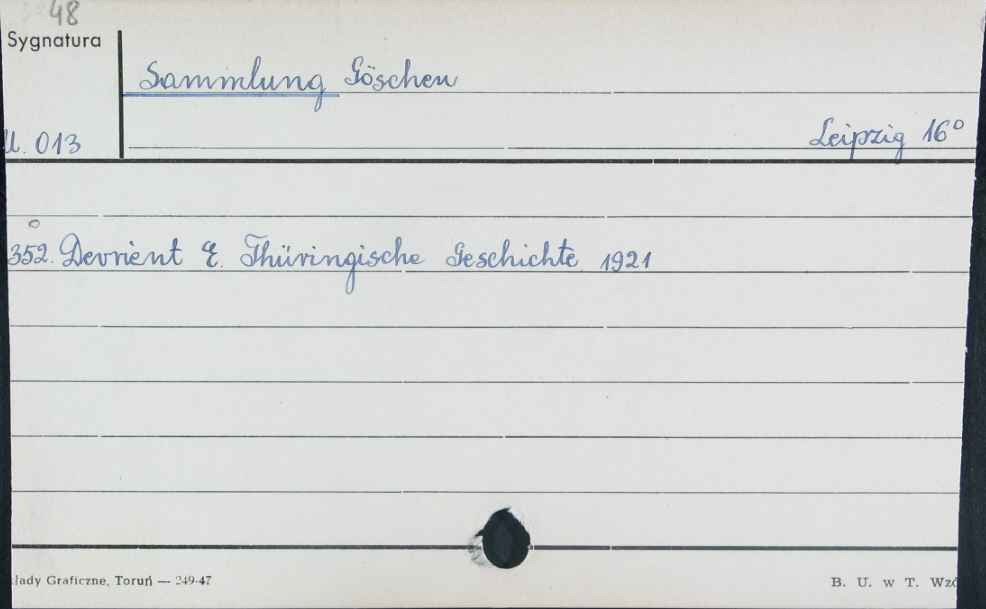 48
Sygnatura
Sammlung Göschen
U. 013
Leipzig 16°
352. Devrient E. Thüringische Geschichte 1921
łady Graficzne, Toruń — 249-47
B. U. w T. Wzó